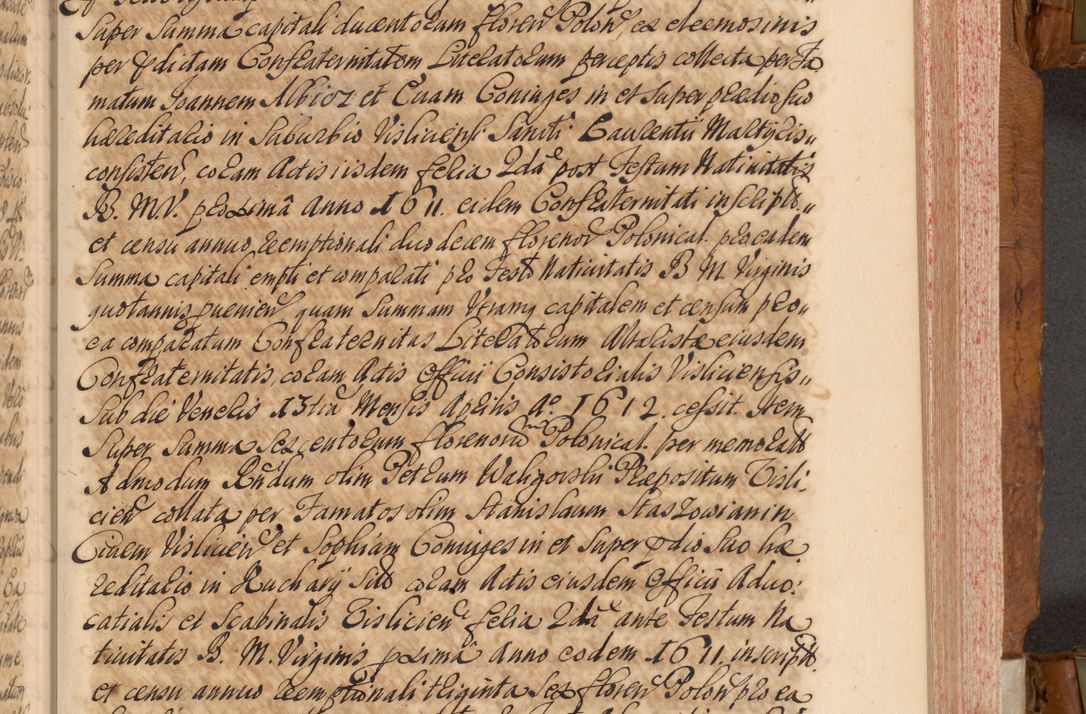 Super Summa capitali ducentorum floren Polon, ex eleemosinis
per prdictam Confraternitatem Litteratorum perceptis collecta per Fa
matum Joannem Albicz et Evam Coniuges in et super praedio suo
haereditario in Suburbio Visliciensi Sancti Laurentii Martyris,,
consisten, coram Actis iisdem feria 2da post Festum Nativitatis
B. M. V. proximâ Anno 1611. eidem Confraternitati inscripto,,
et censu annuo, reemptionali duodecem florenor Polonical. pro eadem
Summa capitali empti et comparati pro Festo Nativitatis B M Virginis
quotannis pvenien, quam Summam Utramq capitalem et censum pro,,
ea comparatum Confraternitas Literatorum Altaristae eiusdem
Confraternitatis, coram Actis Officii Consistorialis Visliciensis,,
Sub die Veneris 13tia Mensis Aprilis Ao. 1612. cessit. Item
Super Summa Sexcentorum florenorum Polonical. per memorato
Admodum Rndum olim Petrum Waligorski Praepositum Visli,
cien collata per Famatos olim Stanislaum Staszowianin
Civem Vislicien et Sophiam Coniuges in et Super prdio Suo hae
reditario in Kuchary Sito coram Actis eiusdem Officii Advo:
catialis et Scabinalis Vislicien feria 2da ante Festum Na
tivitatis B. M. Virginis pximâ Anno eodem 1611 inscripto.
et censu annuo reemptionali triginta Sex floren Polon pro ea